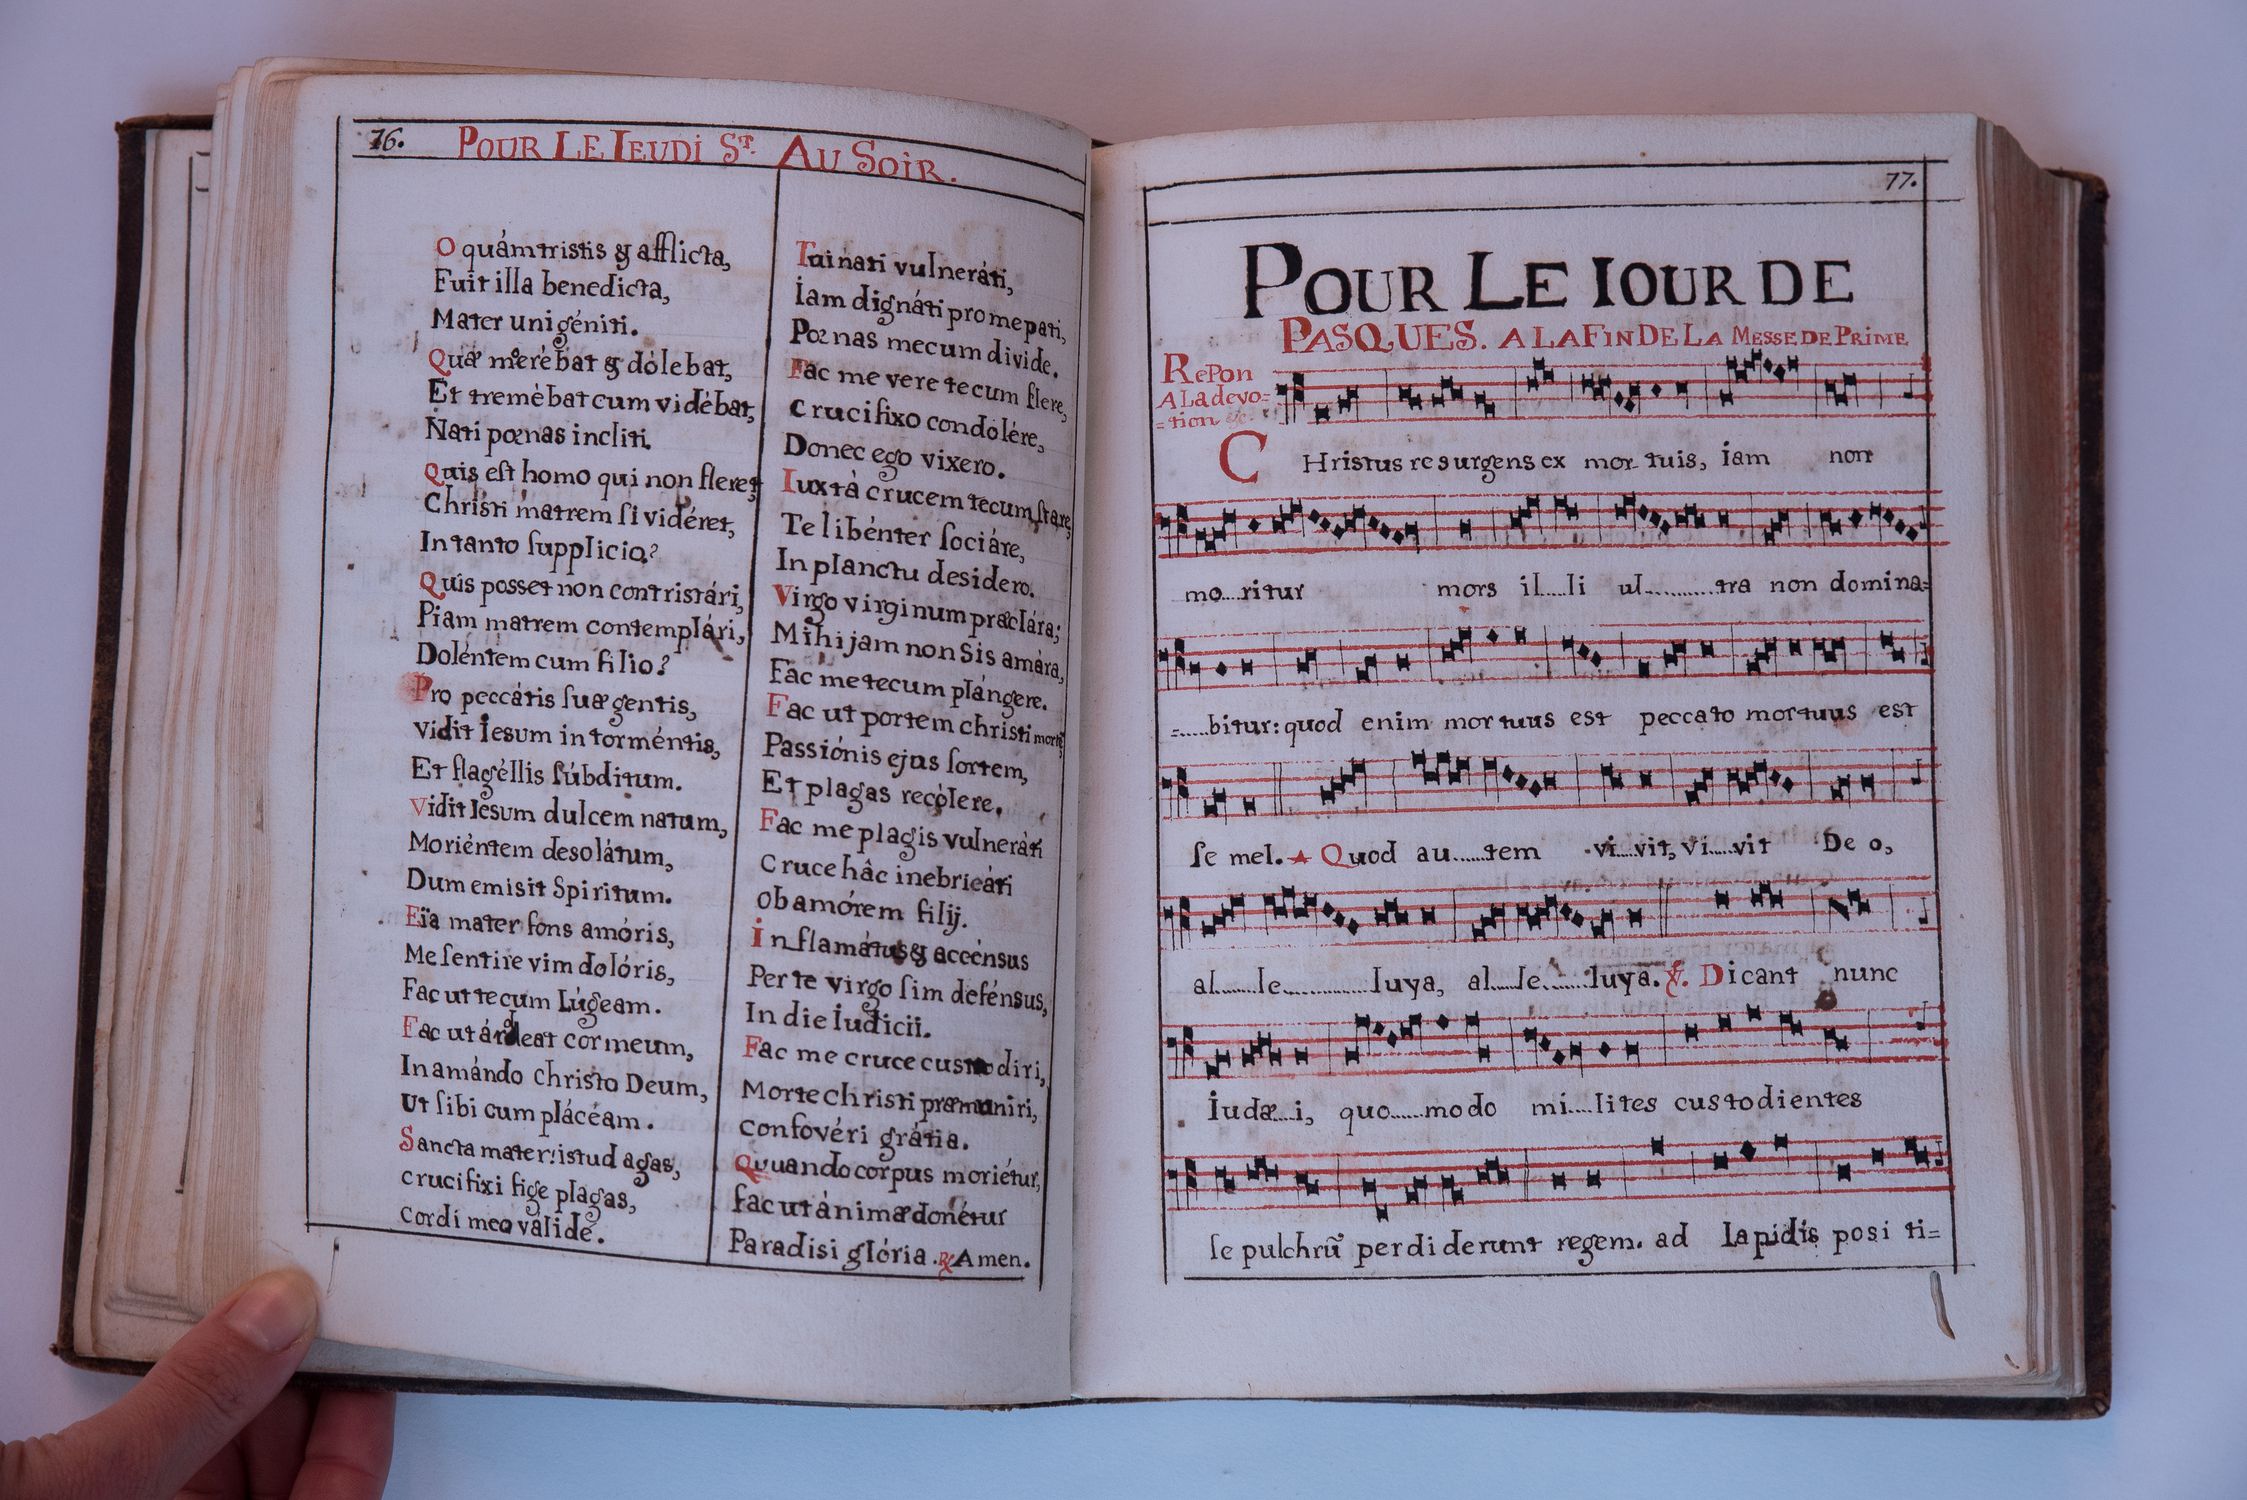 76. POUR LE IEUDI ST. AU SOIR.
O quám tristis & afflicta,
Fuit illa benedicta,
Mater unigéniti.
Quæ mœrébat & dólebat,
Et tremébat cum vidébat,
Nati pœnas incliti.
Quis est homo qui non fleret
Christi matrem si vidéret,
In tanto supplicio?
Quis posset non contristári,
Piam matrem contemplári,
Doléntem cum filio?
Pro peccátis suæ gentis,
vidit Iesum in torméntis,
Et flagéllis súbditum.
Vidit Iesum dulcem natum,
Moriéntem desolátum,
Dum emisit Spiritum.
Eïa mater fons amóris,
Me sentire vim dolóris,
Fac ut tecum Lúgeam.
Fac ut árdeat cor meum,
In amándo Christo Deum,
Ut sibi cum plácéam.
Sancta mater istud agas,
crucifixi fige plagas,
cordi meo válide.
Tui nati vulneráti,
Iam dignáti pro me pati,
Pœnas mecum divide.
Fac me vere tecum flere,
crucifixo condolére,
Donec ego vixero.
Iuxtà crucem tecum stare,
Te libénter sociáre,
In planctu desidero.
Virgo virginum præclára;
Mihi jam non sis amára,
Fac me tecum plángere.
Fac ut portem christi morté
Passiónis ejus sortem,
Et plagas recólere.
Fac me plagis vulneráti
Cruce hâc inebrieári
ob amórem filij.
Inflamátus & accénsus
Per te virgo sim defénsus,
In die Iudicii.
Fac me cruce custodiri,
Morte christi præmuniri,
confovéri grátia.
Quuando corpus moriétur,
fac ut ánimæ donétur
Paradisi glória. ℟ Amen.
77.
POUR LE IOUR DE
PASQUES. A LA FIN DE LA MESSE DE PRIME
Repon
A La devo=
=tion &c.
CHristus resurgens ex mor tuis, iam non
mo....ritur mors il....li ul..........tra non domina=
=.....bitur: quod enim mortuus est peccato mortuus est
se mel. Quod au......tem vi....vit, vi....vit De o,
al......le............luya, al....le......luya. ℣. Dicant nunc
Iudæ...i, quo.....modo mi....lites custodientes
sepulchrũ perdiderunt regem. ad lapidis posi ti=